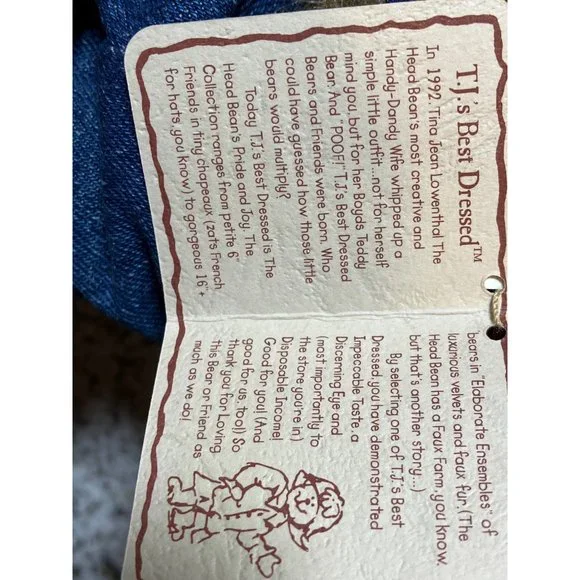 T.J.'s Best Dressed™
In 1992 Tina Jean Lowenthal The
Head Bean's most creative and
Handy-Dandy Wife whipped up a
simple little outfit...not for herself
mind you, but for her Boyds Teddy
Bear. And "POOF!" T.J.'s Best Dressed
Bears and Friends were born. Who
could have guessed how those little
bears would multiply?
Today T.J.'s Best Dressed is The
Head Bean's Pride and Joy. The
Collection ranges from petite 6"
Friends in tiny chapeaux (zats French
for hats, you know) to gorgeous 16"+
bears in "Elaborate Ensembles" of
luxurious velvets and faux fur. (The
Head Bean has a Faux Farm, you know,
but that's another story...)
By selecting one of T.J.'s Best
Dressed, you have demonstrated
Impeccable Taste, a
Discerning Eye and
(most importantly to
the store you're in)
Disposable Income!
Good for you! (And
good for us, too!) So
thank you for Loving
this Bear or Friend as
much as we do!